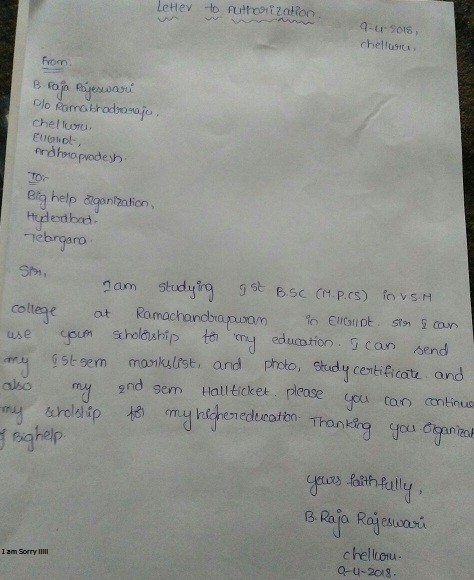 Letter to Authorization.
9-4-2018,
chelluru.
From:
B. Raja Rajeswari
D/o Ramabhadraraju,
chelluru.
Andhrapradesh.
To:-
Big help Organization,
Hyderabad,
Telangana.
Sir,
I am studying Ist B.SC (M.P.CS) in V.S.M
college at Ramachandrapuram in Sir I can
use your scholarship for my education. I can send
my Ist sem markslist, and photo, study certificate and
also my 2nd sem Hallticket. please you can continue
my for my highereducation. Thanking you
Bighelp.
yours faithfully,
B. Raja Rajeswari
chelluru.
9-4-2018.
I am Sorry !!!!!